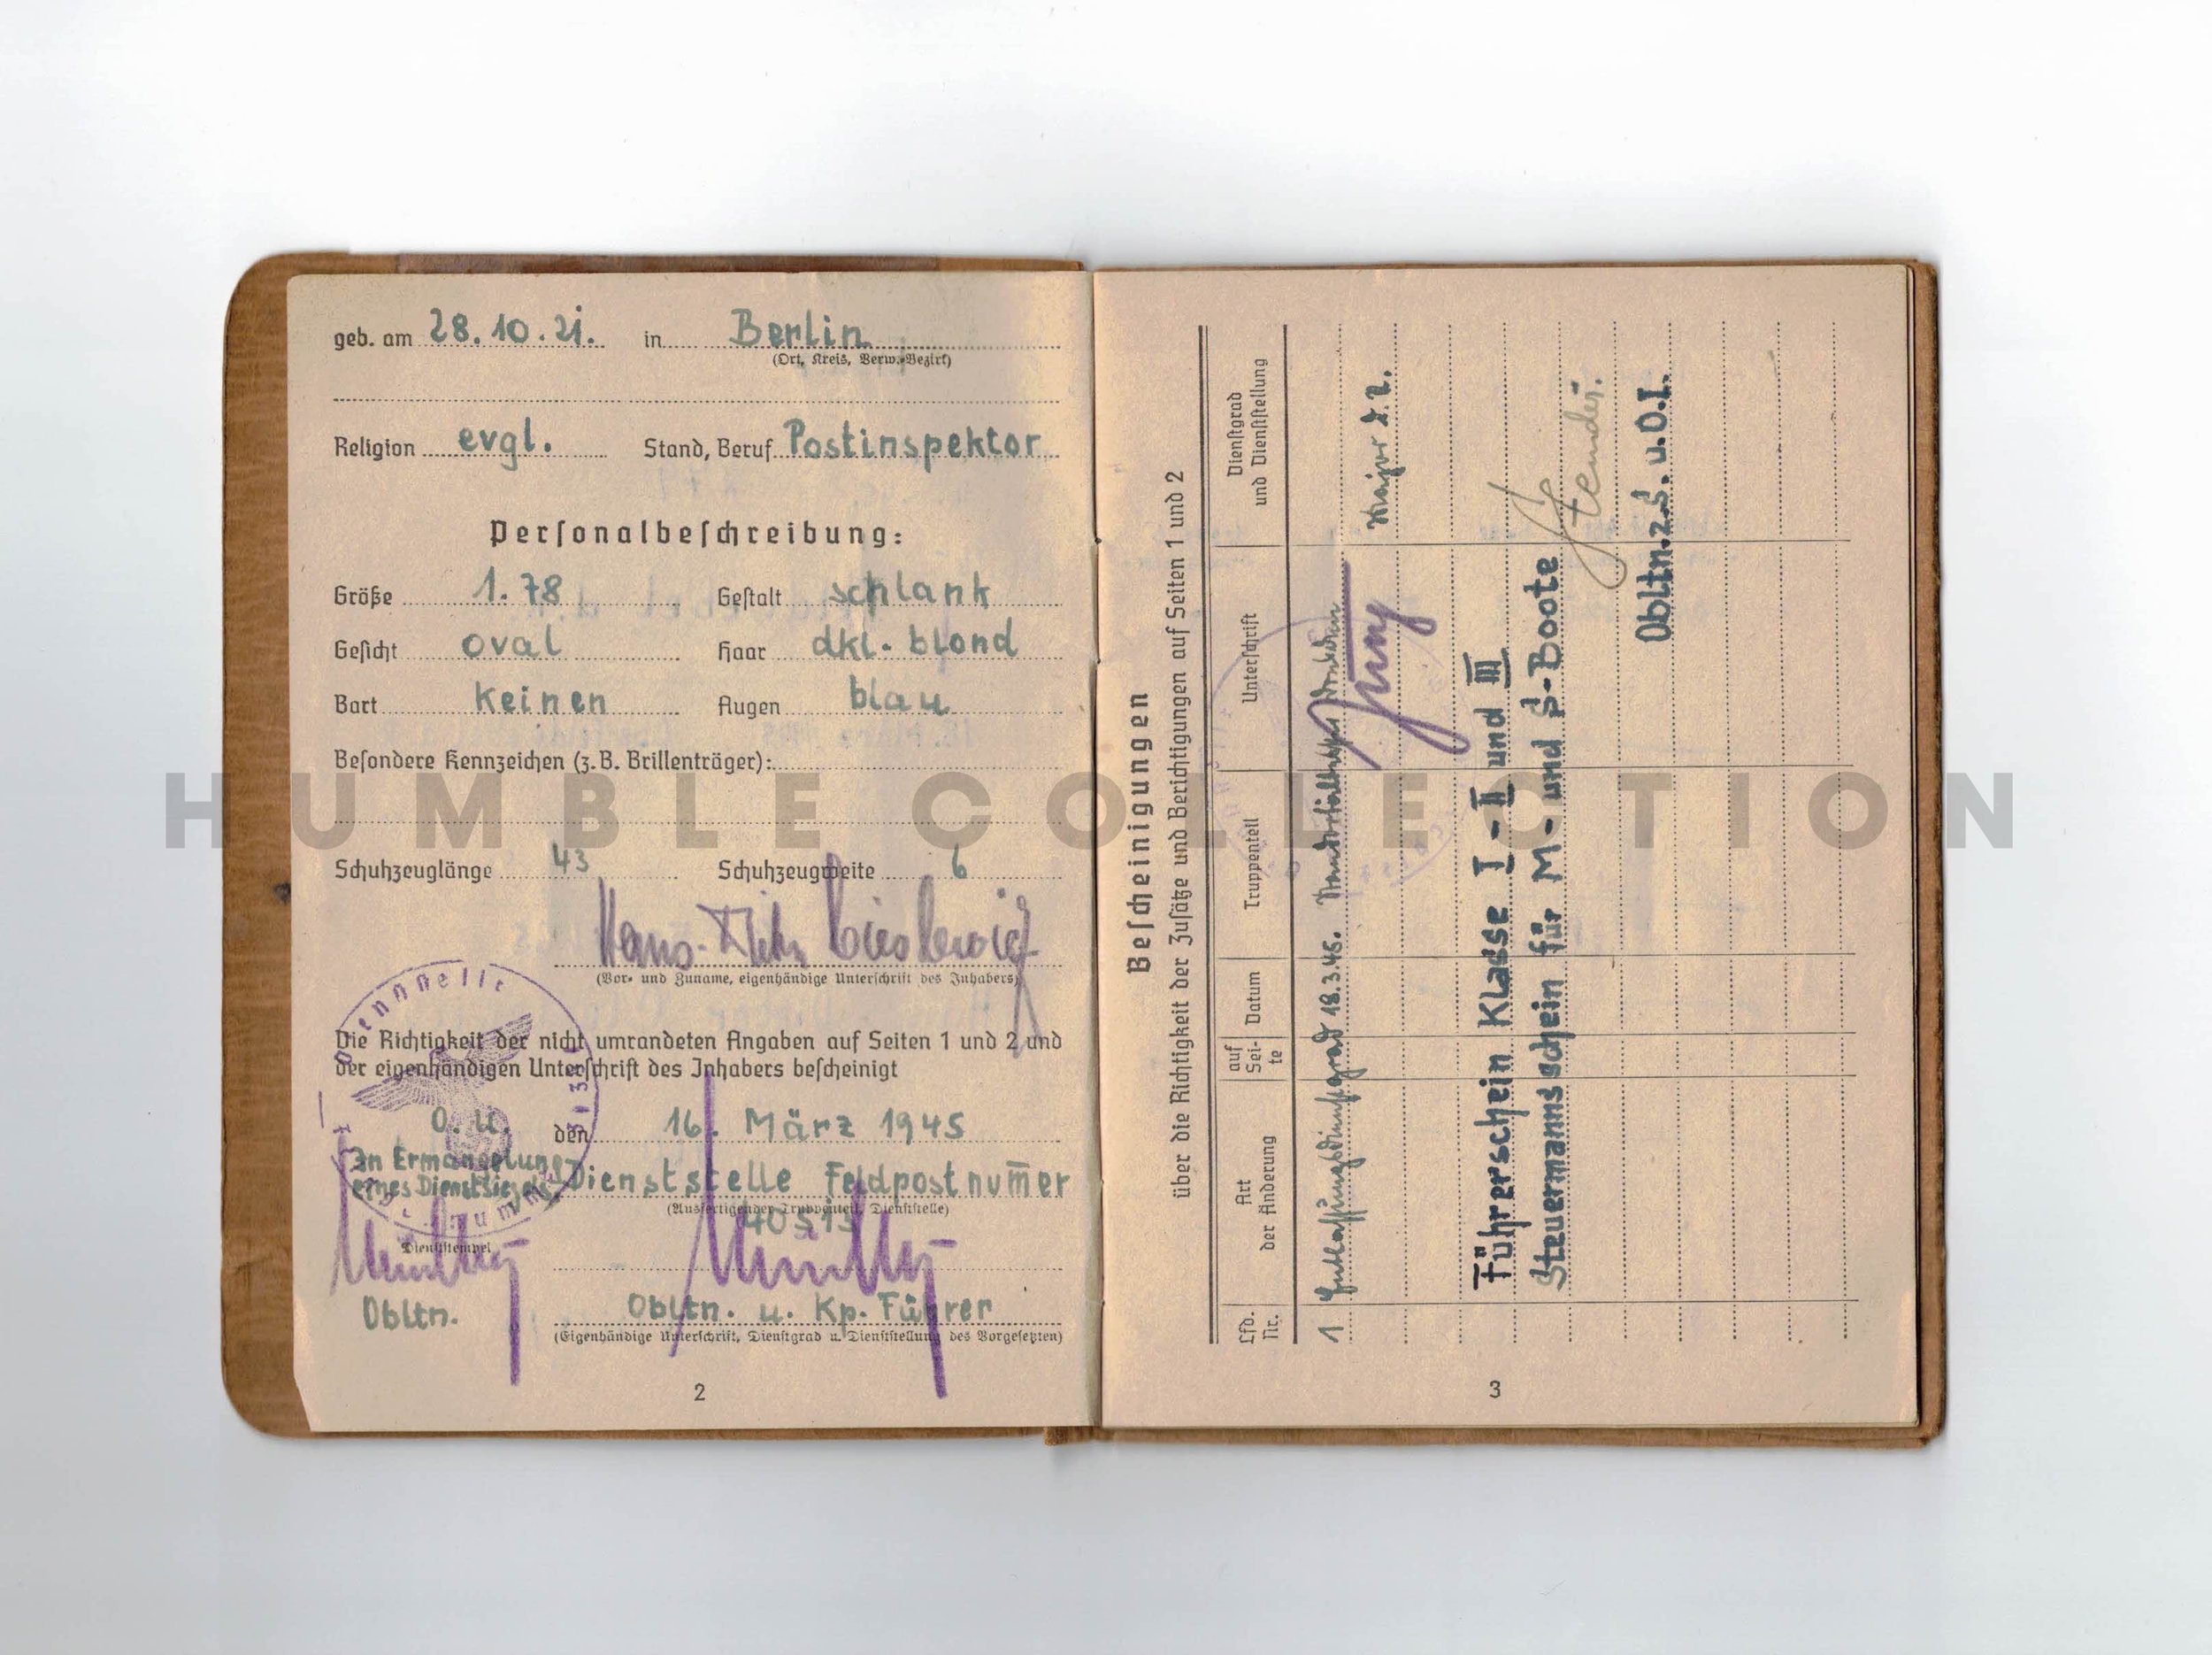 geb. am 28.10.21. in Berlin
(Ort, Kreis, Verw.-Bezirk)
Religion evgl. Stand, Beruf Postinspektor
Personalbeschreibung:
Größe 1.78 Gestalt schlank
Gesicht oval Haar dkl.-blond
Bart keinen Augen blau
Besondere Kennzeichen (z.B. Brillenträger):
HUMBLE COLLECTION
Schuhzeuglänge 43 Schuhzeugweite 6
Hans-
(Vor- und Zuname, eigenhändige Unterschrift des Inhabers)
Die Richtigkeit der nicht umrandeten Angaben auf Seiten 1 und 2 und
der eigenhändigen Unterschrift des Inhabers bescheinigt
O.U. den 16. März 1945
In Ermangelung
eines Dienstsiegels
Dienststelle Feldpostnummer
(Ausfertigender Truppenteil, Dienststelle)
40515
Dienststempel
Obltn. Obltn. u. Kp. Führer
(Eigenhändige Unterschrift, Dienstgrad u. Dienststellung des Vorgesetzten)
2
Bescheinigungen
über die Richtigkeit der Zusätze und Berichtigungen auf Seiten 1 und 2
Lfd. Nr. Art der Änderung auf Seite Datum Truppenteil Unterschrift Dienstgrad und Dienststellung
1 Entlassungsdienstgrad 18.3.45.
Major
Führerschein Klasse I - II und III
Steuermannsschein für M- und S-Boote
Obltn.z.S. u.O.I.
3